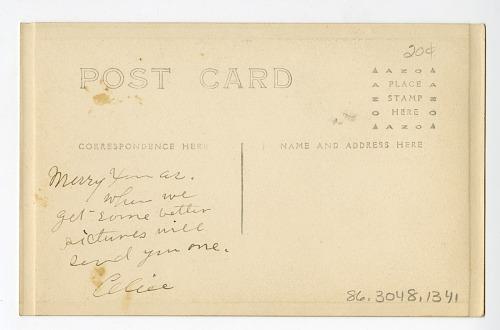 20¢
POST CARD
AZO
PLACE
STAMP
HERE
AZO
CORRESPONDENCE HERE
NAME AND ADDRESS HERE
Merry Xmas.
when we
get some better
pictures will
send you one.
86.3048.1341